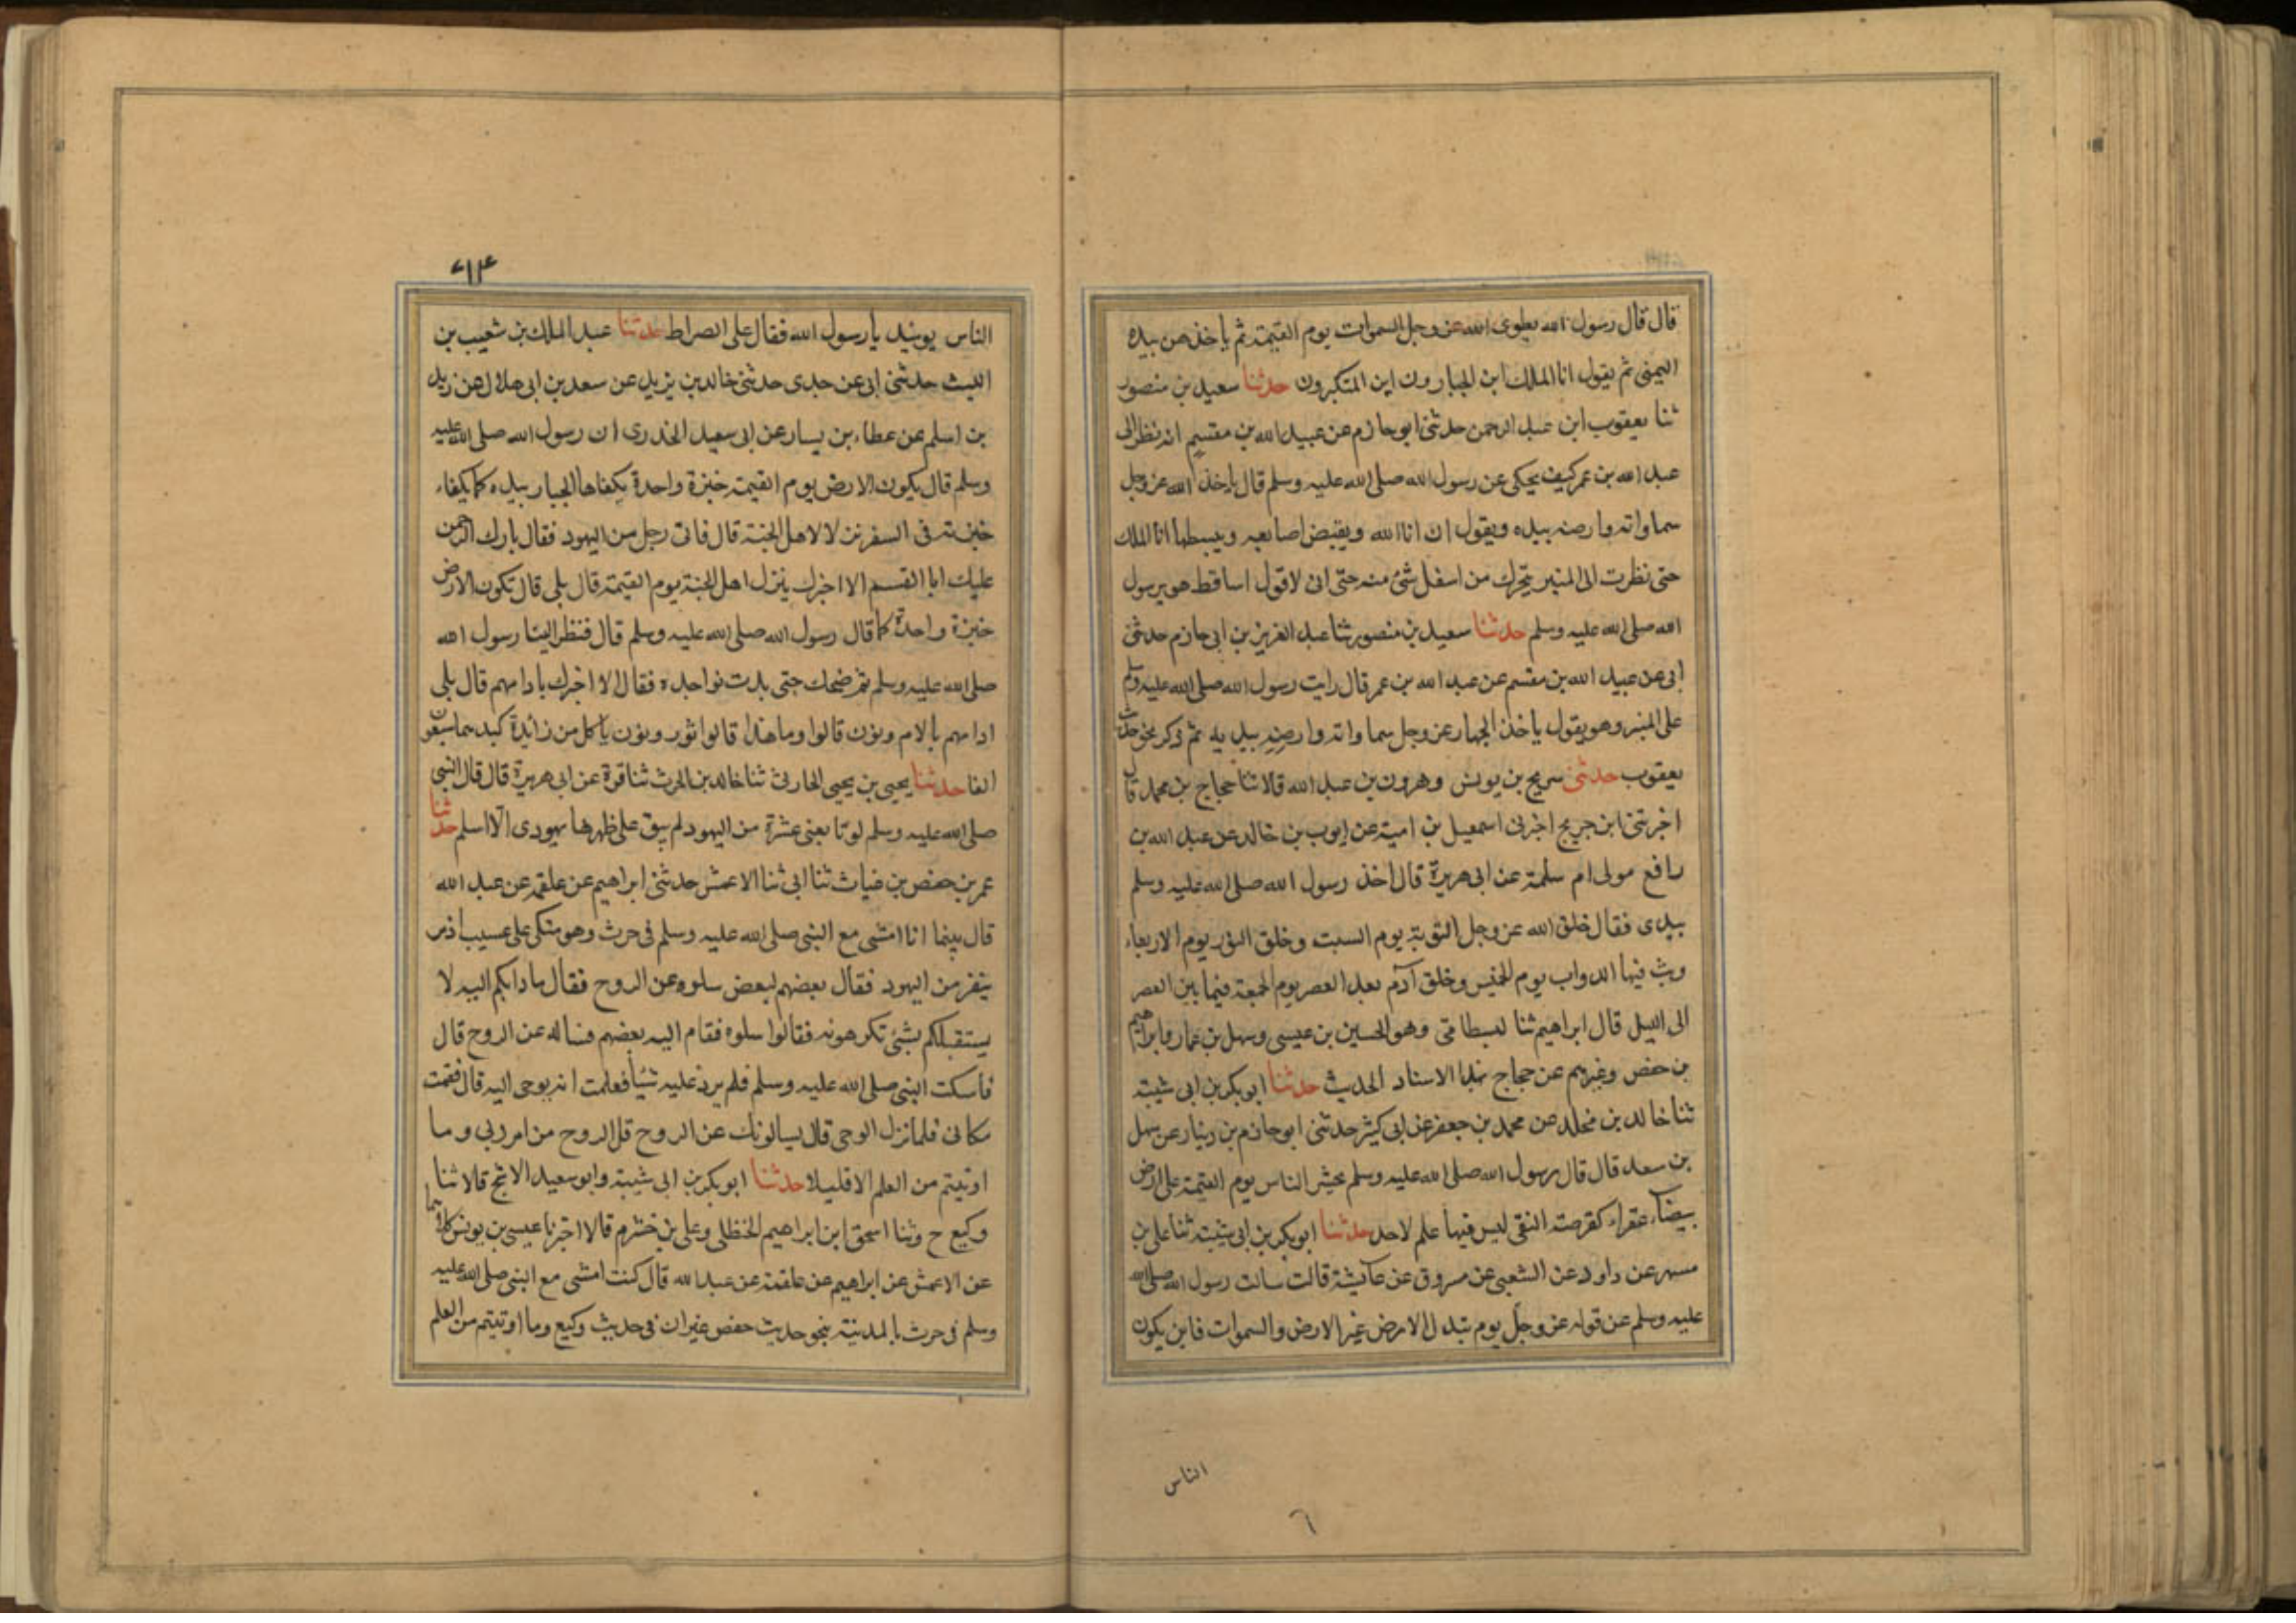 قال قال رسول الله يطوى الله عز وجل السموات يوم القيمة ثم ياخذهن بيده
اليمنى ثم يقول انا الملك اين الجبارون اين المتكبرون حدثنا سعيد بن منصور
ثنا يعقوب ابن عبد الرحمن حدثنى ابو حازم عن عبيد الله بن مقسم انه نظر الى
عبد الله بن عمر كيف يحكى عن رسول الله صلى الله عليه وسلم قال ياخذ الله عز وجل
سماواته وارضه بيده ويقول ان انا الله ويقبض اصابعه ويبسطها انا الملك
حتى نظرت الى المنبر يتحرك من اسفل شئ منه حتى انى لاقول اساقط هو برسول
الله صلى الله عليه وسلم حدثنا سعيد بن منصور ثنا عبد العزيز بن ابى حازم حدثنى
ابى عن عبيد الله بن مقسم عن عبد الله بن عمر قال رايت رسول الله صلى الله عليه وسلم
على المنبر وهو يقول ياخذ الجبار عز وجل سماواته وارضه بيديه ثم ذكر نحو حديث
يعقوب حدثنى سريج بن يونس وهرون بن عبد الله قالا ثنا حجاج بن محمد قال
اخبرنى ابن جريج اخبرنى اسمعيل بن امية عن ايوب بن خالد عن عبد الله بن
رافع مولى ام سلمة عن ابى هريرة قال اخذ رسول الله صلى الله عليه وسلم
بيدى فقال خلق الله عز وجل التوبة يوم السبت وخلق النور يوم الاربعاء
وبث فيها الدواب يوم الخميس وخلق آدم بعد العصر يوم الجمعة فيما بين العصر
الى الليل قال ابراهيم ثنا لبسطامى وهو الحسين بن عيسى وسهل بن عمار وابراهيم
بن حفص وغيرهم عن حجاج بهذا الاسناد الحديث حدثنا ابو بكر بن ابى شيبة
ثنا خالد بن مخلد عن محمد بن جعفر عن ابى كثير حدثنى ابو حازم بن دينار عن سهل
بن سعد قال قال رسول الله صلى الله عليه وسلم يحشر الناس يوم القيمة على ارض
بيضاء عقراء كقرصة النقى ليس فيها علم لاحد حدثنا ابو بكر بن ابى شيبة ثنا على بن
مسهر عن داود عن الشعبى عن مسروق عن عايشة قالت سالت رسول الله صلى الله
عليه وسلم عن قوله عز وجل يوم تبدل الارض غير الارض والسموات فاين يكون
الناس
٦
الناس يوميذ يا رسول الله فقال على الصراط حدثنا عبد الملك بن شعيب بن
الليث حدثنى ابى عن جدى حدثنى خالد بن يزيد عن سعد بن ابى هلال عن زيد
بن اسلم عن عطاء بن يسار عن ابى سعيد الخدرى ان رسول الله صلى الله عليه
وسلم قال يكون الارض يوم القيمة خبزة واحدة يكفاها الجبار بيده كما يكفاء
خبزته فى السفر نزلا لاهل الجنة قال فاتى رجل من اليهود فقال بارك الرحمن
عليك ابا القسم الا اخبرك ينزل اهل الجنة يوم القيمة قال بلى قال تكون الارض
خبزة واحدة كما قال رسول الله صلى الله عليه وسلم قال فنظر الينا رسول الله
صلى الله عليه وسلم ثم ضحك حتى بدت نواجذه فقال الا اخبرك بادامهم قال بلى
ادامهم بالام ونون قالوا وما هذا قالوا ثور ونون ياكل من زائدة كبدهما سبعون
الفا حدثنا يحيى بن يحيى الحارثى ثنا خالد بن الحرث ثنا قرة عن ابى هريرة قال قال النبى
صلى الله عليه وسلم لو تابعنى عشرة من اليهود لم يبق على ظهرها يهودى الا اسلم حدثنا
عمر بن حفص بن غياث ثنا ابى ثنا الاعمش حدثنى ابراهيم عن علقمة عن عبد الله
قال بينما انا امشى مع النبى صلى الله عليه وسلم فى حرث وهو متكى على عسيب اذ مر
بنفر من اليهود فقال بعضهم لبعض سلوه عن الروح فقال ما دابكم اليه لا
يستقبلكم بشئ تكرهونه فقالوا سلوه فقام اليه بعضهم فساله عن الروح قال
فاسكت النبى صلى الله عليه وسلم فلم يرد عليه شيأ فعلمت انه يوحى اليه قال فقمت
مكانى فلما نزل الوحى قال يسالونك عن الروح قل الروح من امر ربى وما
اوتيتم من العلم الا قليلا حدثنا ابو بكر بن ابى شيبة وابو سعيد الاشج قالا ثنا
وكيع ح وثنا اسحق ابن ابراهيم الحنظلى وعلى بن خشرم قالا اخبرنا عيسى بن يونس كلاهما
عن الاعمش عن ابراهيم عن علقمة عن عبد الله قال كنت امشى مع النبى صلى الله عليه
وسلم فى حرث بالمدينة بنحو حديث حفص غير ان فى حديث وكيع وما اوتيتم من العلم